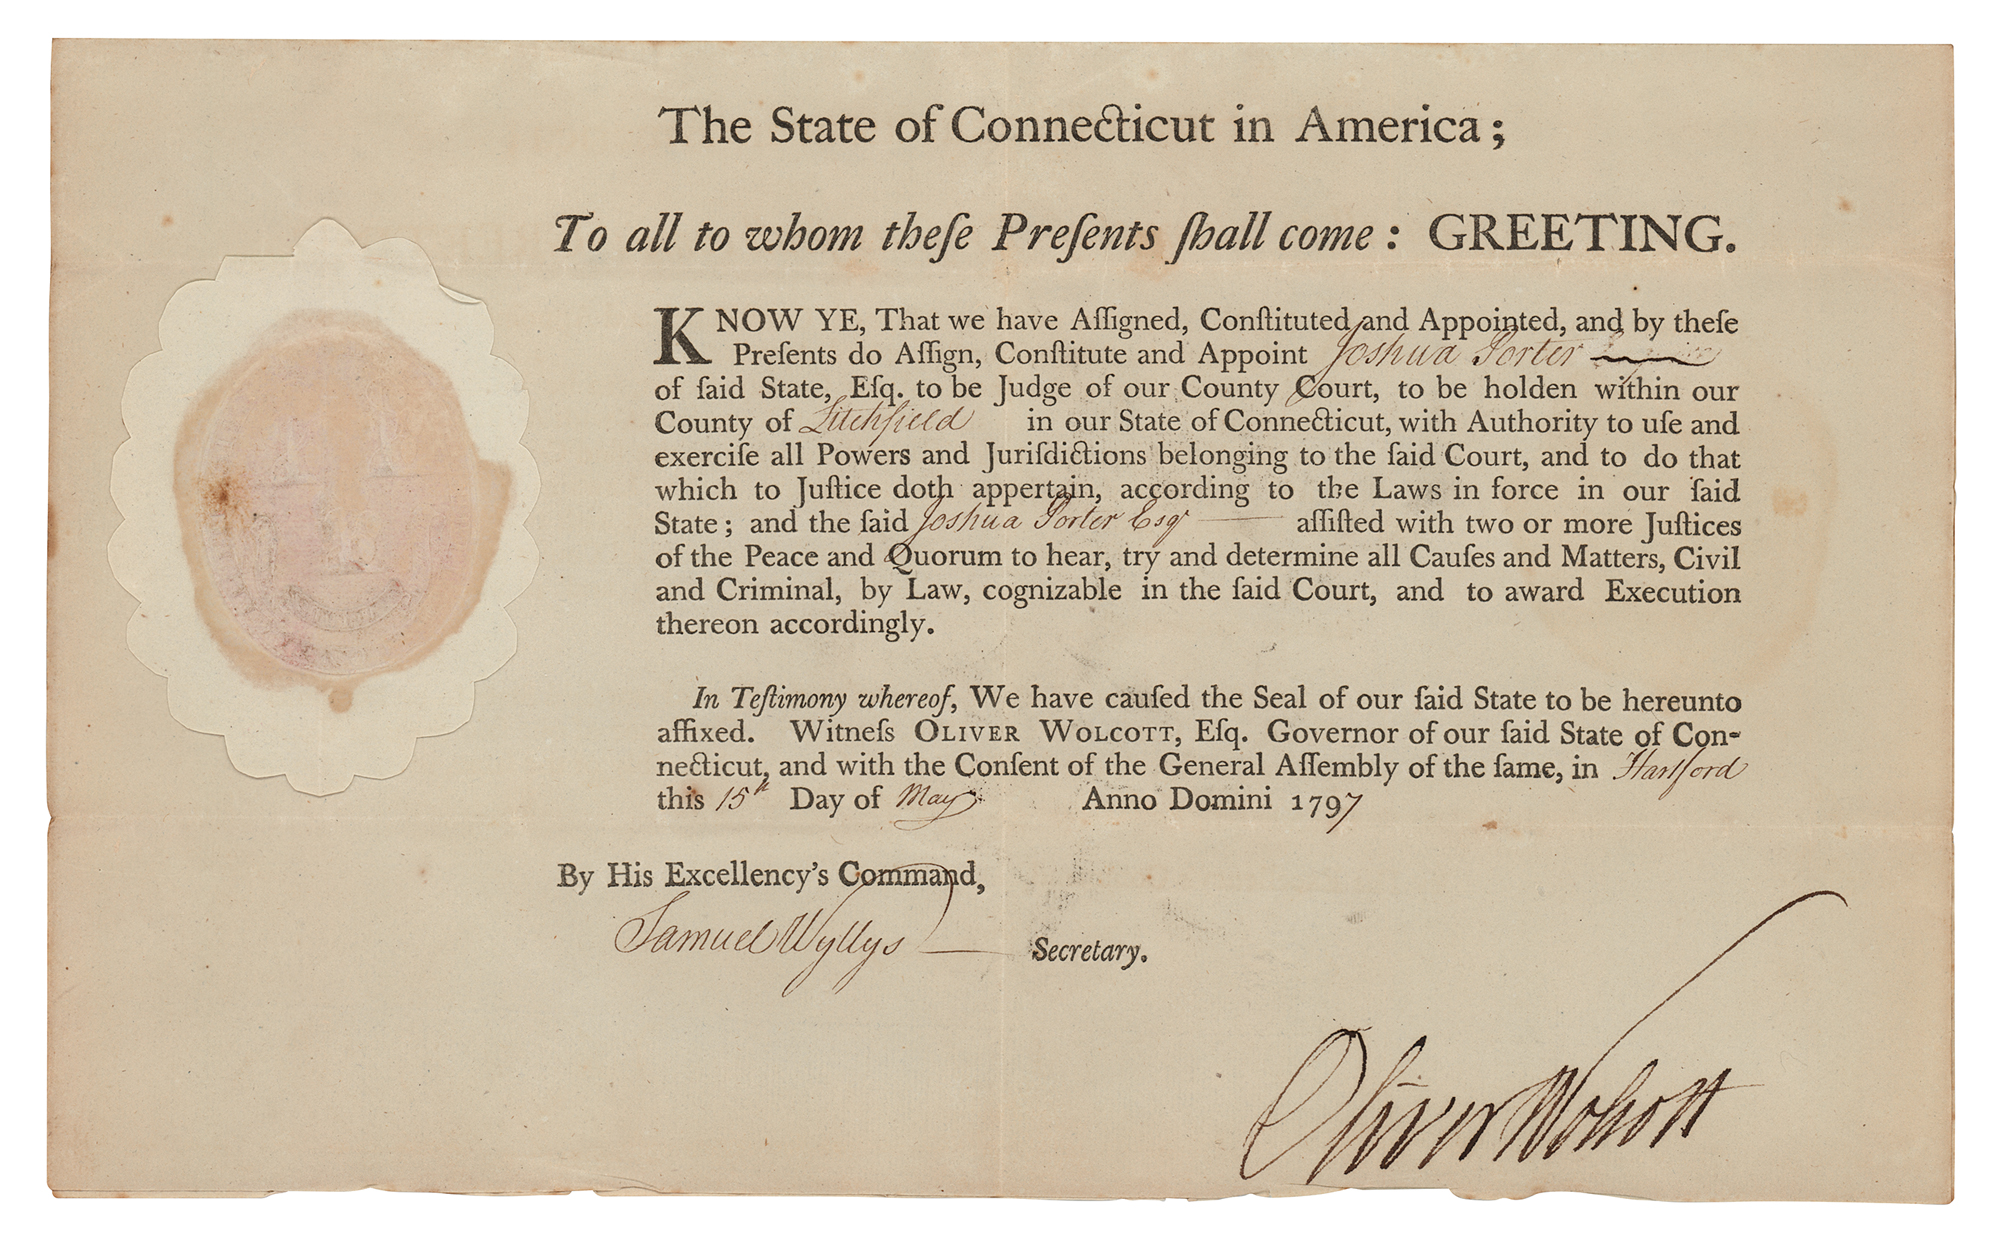 The State of Connecticut in America;
To all to whom theſe Preſents ſhall come: GREETING.
KNOW YE, That we have Aſſigned, Conſtituted and Appointed, and by theſe
Preſents do Aſſign, Conſtitute and Appoint Joshua Porter
of ſaid State, Eſq. to be Judge of our County Court, to be holden within our
County of Litchfield in our State of Connecticut, with Authority to uſe and
exerciſe all Powers and Juriſdictions belonging to the ſaid Court, and to do that
which to Juſtice doth appertain, according to the Laws in force in our ſaid
State; and the ſaid Joshua Porter Esqr aſſiſted with two or more Juſtices
of the Peace and Quorum to hear, try and determine all Cauſes and Matters, Civil
and Criminal, by Law, cognizable in the ſaid Court, and to award Execution
thereon accordingly.
In Teſtimony whereof, We have cauſed the Seal of our ſaid State to be hereunto
affixed. Witneſs OLIVER WOLCOTT, Eſq. Governor of our ſaid State of Con-
necticut, and with the Conſent of the General Aſſembly of the ſame, in Hartford
this 15th Day of May Anno Domini 1797
By His Excellency's Command,
Samuel Wyllys Secretary.
Oliver Wolcott